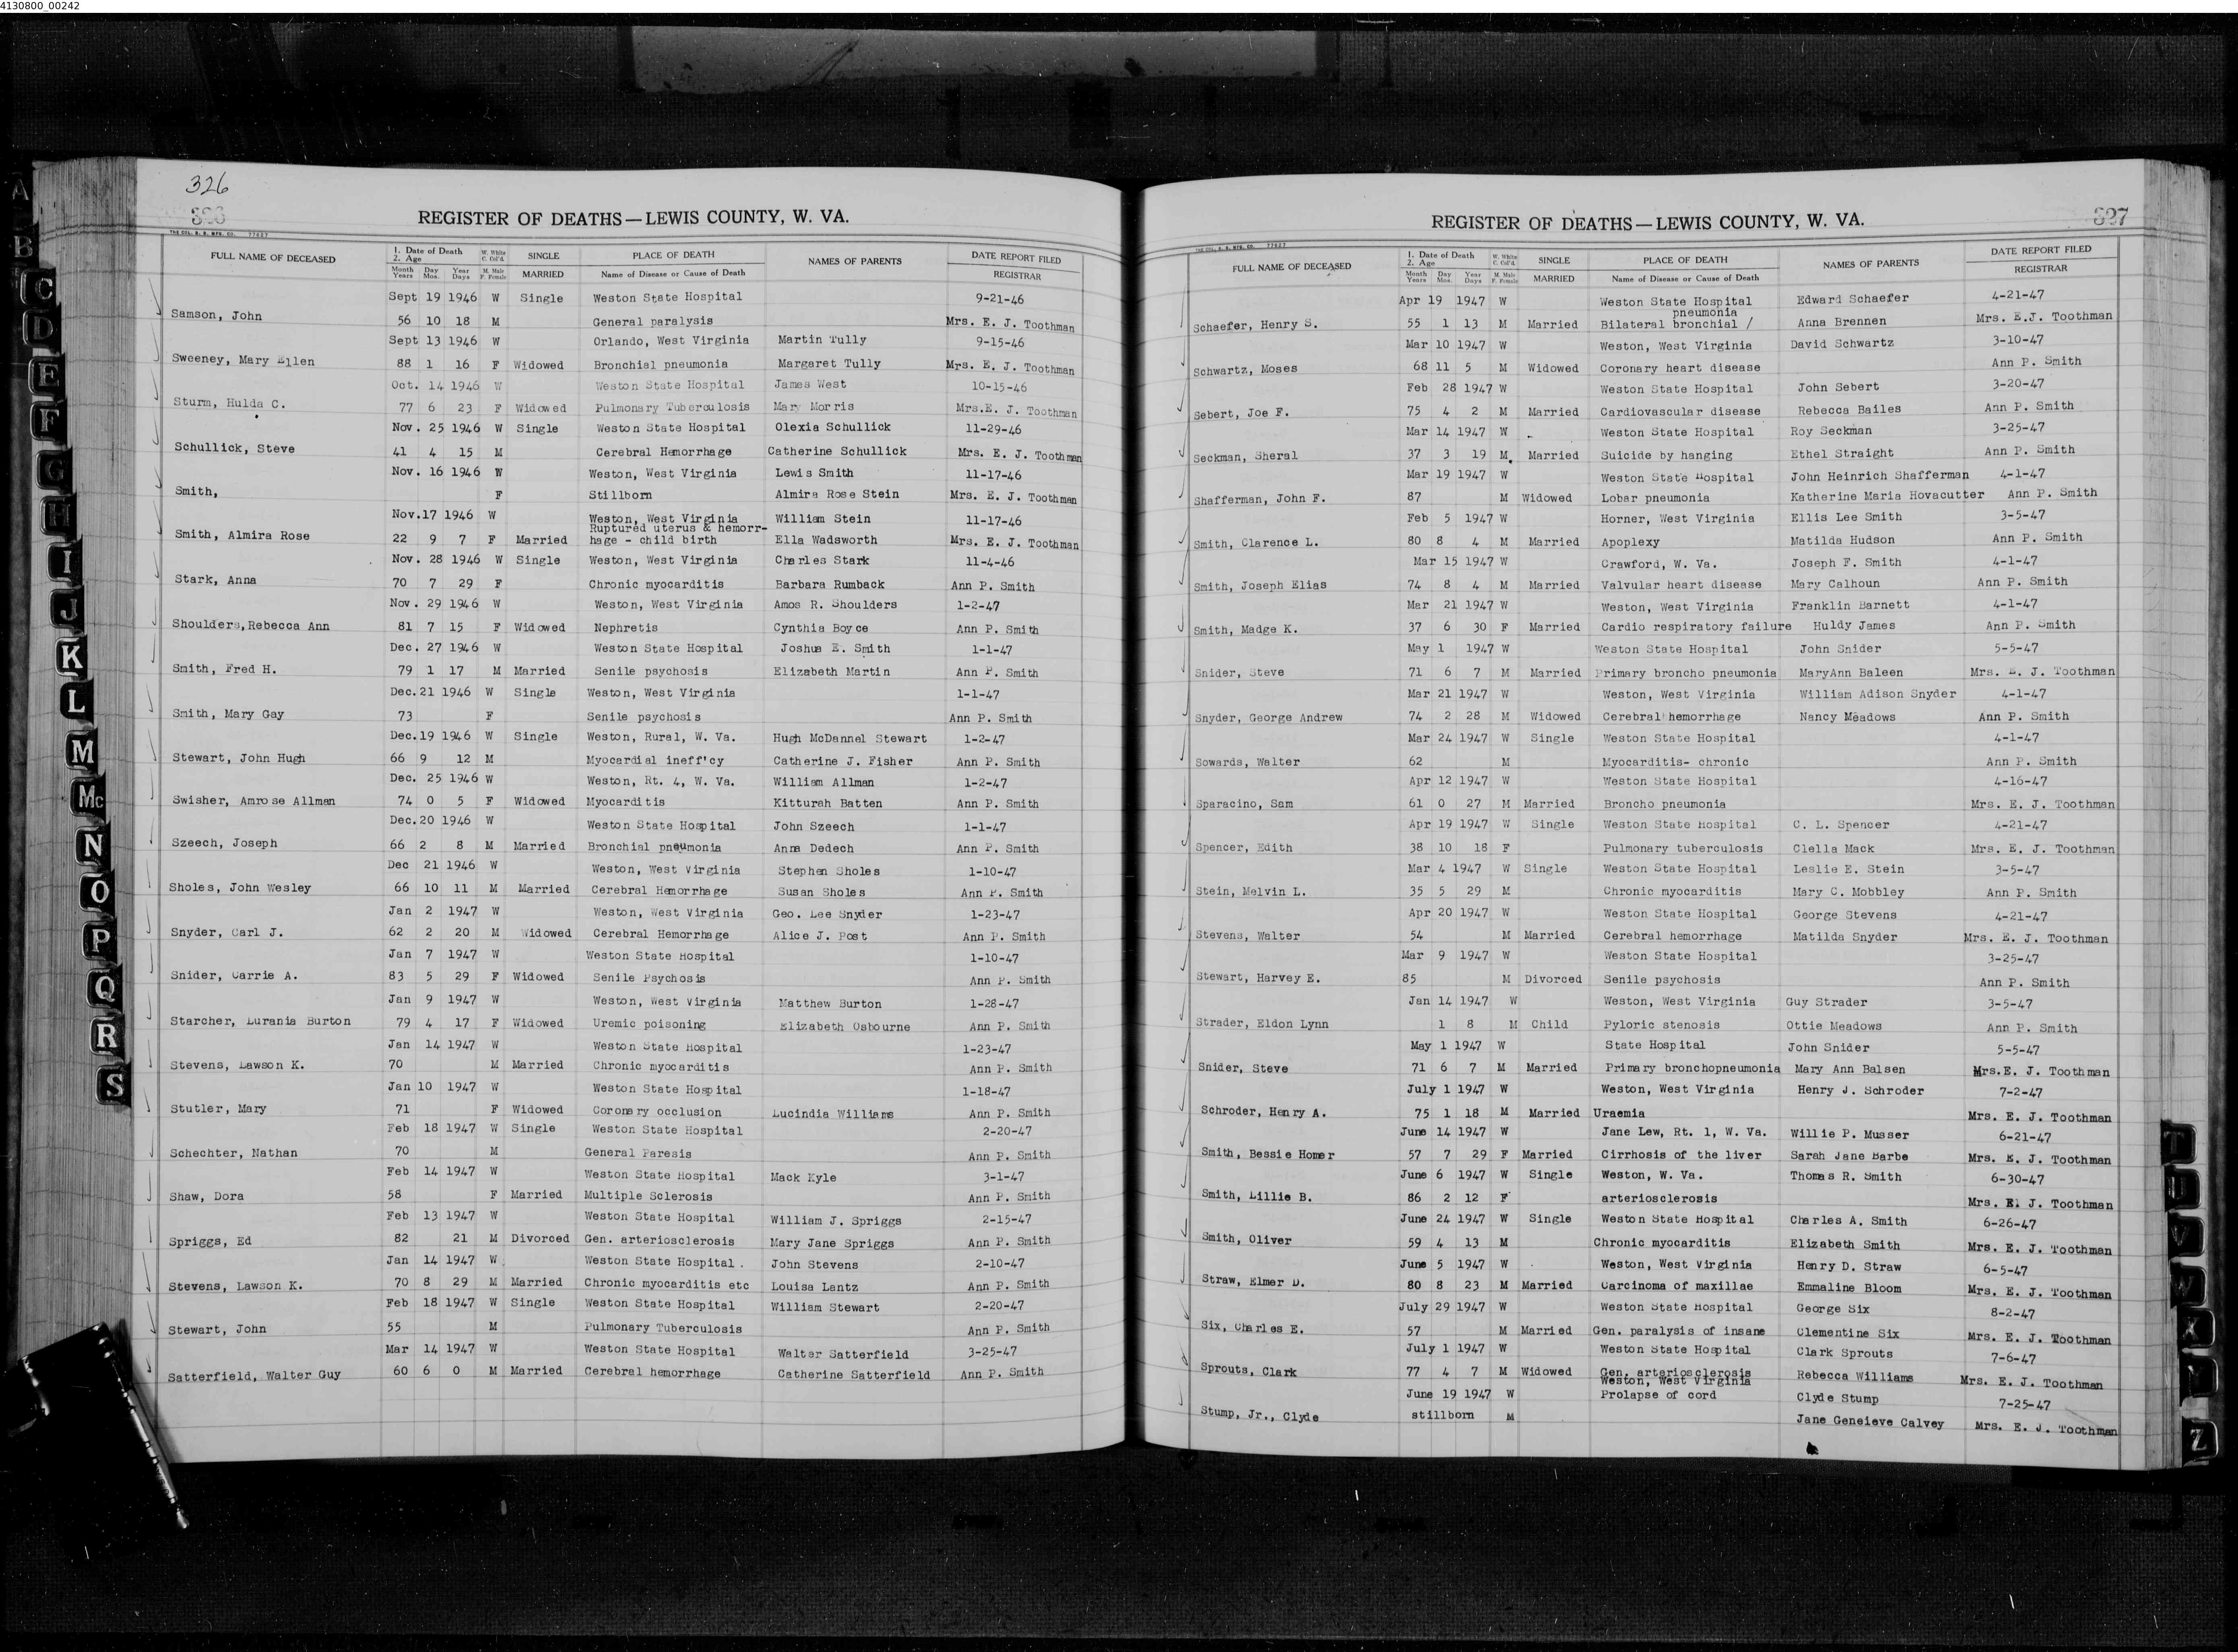 4130800_00242
326
REGISTER OF DEATHS—LEWIS COUNTY, W. VA.
FULL NAME OF DECEASED 1. Date of Death 2. Age W. White C. Col'd SINGLE PLACE OF DEATH NAMES OF PARENTS DATE REPORT FILED
Month Years Day Mos. Year Days M. Male F. Female MARRIED Name of Disease or Cause of Death REGISTRAR
Sept 19 1946 W Single Weston State Hospital 9-21-46
Samson, John 56 10 18 M General paralysis Mrs. E. J. Toothman
Sept 13 1946 W Orlando, West Virginia Martin Tully 9-15-46
Sweeney, Mary Ellen 88 1 16 F Widowed Bronchial pneumonia Margaret Tully Mrs. E. J. Toothman
Oct. 14 1946 W Weston State Hospital James West 10-15-46
Sturm, Hulda C. 77 6 23 F Widowed Pulmonary Tuberculosis Mary Morris Mrs.E. J. Toothman
Nov. 25 1946 W Single Weston State Hospital Olexia Schullick 11-29-46
Schullick, Steve 41 4 15 M Cerebral Hemorrhage Catherine Schullick Mrs. E. J. Toothman
Nov. 16 1946 W Weston, West Virginia Lewis Smith 11-17-46
Smith, F Stillborn Almira Rose Stein Mrs. E. J. Toothman
Nov.17 1946 W Weston, West Virginia William Stein 11-17-46
Ruptured uterus & hemorr-
Smith, Almira Rose 22 9 7 F Married hage - child birth Ella Wadsworth Mrs. E. J. Toothman
Nov. 28 1946 W Single Weston, West Virginia Charles Stark 11-4-46
Stark, Anna 70 7 29 F Chronic myocarditis Barbara Rumback Ann P. Smith
Nov. 29 1946 W Weston, West Virginia Amos R. Shoulders 1-2-47
Shoulders,Rebecca Ann 81 7 15 F Widowed Nephretis Cynthia Boyce Ann P. Smith
Dec. 27 1946 W Weston State Hospital Joshua E. Smith 1-1-47
Smith, Fred H. 79 1 17 M Married Senile psychosis Elizabeth Martin Ann P. Smith
Dec.21 1946 W Single Weston, West Virginia 1-1-47
Smith, Mary Gay 73 F Senile psychosis Ann P. Smith
Dec.19 1946 W Single Weston, Rural, W. Va. Hugh McDannel Stewart 1-2-47
Stewart, John Hugh 66 9 12 M Myocardial ineff'cy Catherine J. Fisher Ann P. Smith
Dec. 25 1946 W Weston, Rt. 4, W. Va. William Allman 1-2-47
Swisher, Amrose Allman 74 0 5 F Widowed Myocarditis Kitturah Batten Ann P. Smith
Dec.20 1946 W Weston State Hospital John Szeech 1-1-47
Szeech, Joseph 66 2 8 M Married Bronchial pneumonia Anna Dedech Ann P. Smith
Dec 21 1946 W Weston, West Virginia Stephen Sholes 1-10-47
Sholes, John Wesley 66 10 11 M Married Cerebral Hemorrhage Susan Sholes Ann P. Smith
Jan 2 1947 W Weston, West Virginia Geo. Lee Snyder 1-23-47
Snyder, Carl J. 62 2 20 M Widowed Cerebral Hemorrhage Alice J. Post Ann P. Smith
Jan 7 1947 W Weston State Hospital 1-10-47
Snider, Carrie A. 83 5 29 F Widowed Senile Psychosis Ann P. Smith
Jan 9 1947 W Weston, West Virginia Matthew Burton 1-28-47
Starcher, Lurania Burton 79 4 17 F Widowed Uremic poisoning Elizabeth Osbourne Ann P. Smith
Jan 14 1947 W Weston State Hospital 1-23-47
Stevens, Lawson K. 70 M Married Chronic myocarditis Ann P. Smith
Jan 10 1947 W Weston State Hospital 1-18-47
Stutler, Mary 71 F Widowed Coronary occlusion Lucindia Williams Ann P. Smith
Feb 18 1947 W Single Weston State Hospital 2-20-47
Schechter, Nathan 70 M General Paresis Ann P. Smith
Feb 14 1947 W Weston State Hospital Mack Kyle 3-1-47
Shaw, Dora 58 F Married Multiple Sclerosis Ann P. Smith
Feb 13 1947 W Weston State Hospital William J. Spriggs 2-15-47
Spriggs, Ed 82 21 M Divorced Gen. arteriosclerosis Mary Jane Spriggs Ann P. Smith
Jan 14 1947 W Weston State Hospital. John Stevens 2-10-47
Stevens, Lawson K. 70 8 29 M Married Chronic myocarditis etc Louisa Lantz Ann P. Smith
Feb 18 1947 W Single Weston State Hospital William Stewart 2-20-47
Stewart, John 55 M Pulmonary Tuberculosis Ann P. Smith
Mar 14 1947 W Weston State Hospital Walter Satterfield 3-25-47
Satterfield, Walter Guy 60 6 0 M Married Cerebral hemorrhage Catherine Satterfield Ann P. Smith
327
REGISTER OF DEATHS—LEWIS COUNTY, W. VA.
FULL NAME OF DECEASED 1. Date of Death 2. Age W. White C. Col'd SINGLE PLACE OF DEATH NAMES OF PARENTS DATE REPORT FILED
Month Years Day Mos. Year Days M. Male F. Female MARRIED Name of Disease or Cause of Death REGISTRAR
Apr 19 1947 W Weston State Hospital Edward Schaefer 4-21-47
pneumonia
Schaefer, Henry S. 55 1 13 M Married Bilateral bronchial / Anna Brennen Mrs. E.J. Toothman
Mar 10 1947 W Weston, West Virginia David Schwartz 3-10-47
Schwartz, Moses 68 11 5 M Widowed Coronary heart disease Ann P. Smith
Feb 28 1947 W Weston State Hospital John Sebert 3-20-47
Sebert, Joe F. 75 4 2 M Married Cardiovascular disease Rebecca Bailes Ann P. Smith
Mar 14 1947 W Weston State Hospital Roy Seckman 3-25-47
Seckman, Sheral 37 3 19 M Married Suicide by hanging Ethel Straight Ann P. Smith
Mar 19 1947 W Weston State Hospital John Heinrich Shafferman 4-1-47
Shafferman, John F. 87 M Widowed Lobar pneumonia Katherine Maria Hovacutter Ann P. Smith
Feb 5 1947 W Horner, West Virginia Ellis Lee Smith 3-5-47
Smith, Clarence L. 80 8 4 M Married Apoplexy Matilda Hudson Ann P. Smith
Mar 15 1947 W Crawford, W. Va. Joseph F. Smith 4-1-47
Smith, Joseph Elias 74 8 4 M Married Valvular heart disease Mary Calhoun Ann P. Smith
Mar 21 1947 W Weston, West Virginia Franklin Barnett 4-1-47
Smith, Madge K. 37 6 30 F Married Cardio respiratory failure Huldy James Ann P. Smith
May 1 1947 W Weston State Hospital John Snider 5-5-47
Snider, Steve 71 6 7 M Married Primary broncho pneumonia MaryAnn Baleen Mrs. E. J. Toothman
Mar 21 1947 W Weston, West Virginia William Adison Snyder 4-1-47
Snyder, George Andrew 74 2 28 M Widowed Cerebral hemorrhage Nancy Meadows Ann P. Smith
Mar 24 1947 W Single Weston State Hospital 4-1-47
Sowards, Walter 62 M Myocarditis- chronic Ann P. Smith
Apr 12 1947 W Weston State Hospital 4-16-47
Sparacino, Sam 61 0 27 M Married Broncho pneumonia Mrs. E. J. Toothman
Apr 19 1947 W Single Weston State Hospital C. L. Spencer 4-21-47
Spencer, Edith 38 10 18 F Pulmonary tuberculosis Clella Mack Mrs. E. J. Toothman
Mar 4 1947 W Single Weston State Hospital Leslie E. Stein 3-5-47
Stein, Melvin L. 35 5 29 M Chronic myocarditis Mary C. Mobbley Ann P. Smith
Apr 20 1947 W Weston State Hospital George Stevens 4-21-47
Stevens, Walter 54 M Married Cerebral hemorrhage Matilda Snyder Mrs. E. J. Toothman
Mar 9 1947 W Weston State Hospital 3-25-47
Stewart, Harvey E. 85 M Divorced Senile psychosis Ann P. Smith
Jan 14 1947 W Weston, West Virginia Guy Strader 3-5-47
Strader, Eldon Lynn 1 8 M Child Pyloric stenosis Ottie Meadows Ann P. Smith
May 1 1947 W State Hospital John Snider 5-5-47
Snider, Steve 71 6 7 M Married Primary bronchopneumonia Mary Ann Balsen Mrs.E. J. Toothman
July 1 1947 W Weston, West Virginia Henry J. Schroder 7-2-47
Schroder, Henry A. 75 1 18 M Married Uraemia Mrs. E. J. Toothman
June 14 1947 W Jane Lew, Rt. 1, W. Va. Willie P. Musser 6-21-47
Smith, Bessie Homer 57 7 29 F Married Cirrhosis of the liver Sarah Jane Barbe Mrs. E. J. Toothman
June 6 1947 W Single Weston, W. Va. Thomas R. Smith 6-30-47
Smith, Lillie B. 86 2 12 F arteriosclerosis Mrs. E. J. Toothman
June 24 1947 W Single Weston State Hospital Charles A. Smith 6-26-47
Smith, Oliver 59 4 13 M Chronic myocarditis Elizabeth Smith Mrs. E. J. Toothman
June 5 1947 W Weston, West Virginia Henry D. Straw 6-5-47
Straw, Elmer D. 80 8 23 M Married Carcinoma of maxillae Emmaline Bloom Mrs. E. J. Toothman
July 29 1947 W Weston State Hospital George Six 8-2-47
Six, Charles E. 57 M Married Gen. paralysis of insane Clementine Six Mrs. E. J. Toothman
July 1 1947 W Weston State Hospital Clark Sprouts 7-6-47
Sprouts, Clark 77 4 7 M Widowed Gen. arteriosclerosis Rebecca Williams Mrs. E. J. Toothman
Weston, West Virginia
June 19 1947 W Prolapse of cord Clyde Stump 7-25-47
Stump, Jr., Clyde stillborn M Jane Geneieve Calvey Mrs. E. J. Toothman
A
B
C
D
E
F
G
H
I
J
K
L
M
Mc
N
O
P
Q
R
S
T
U
V
W
X
Y
Z